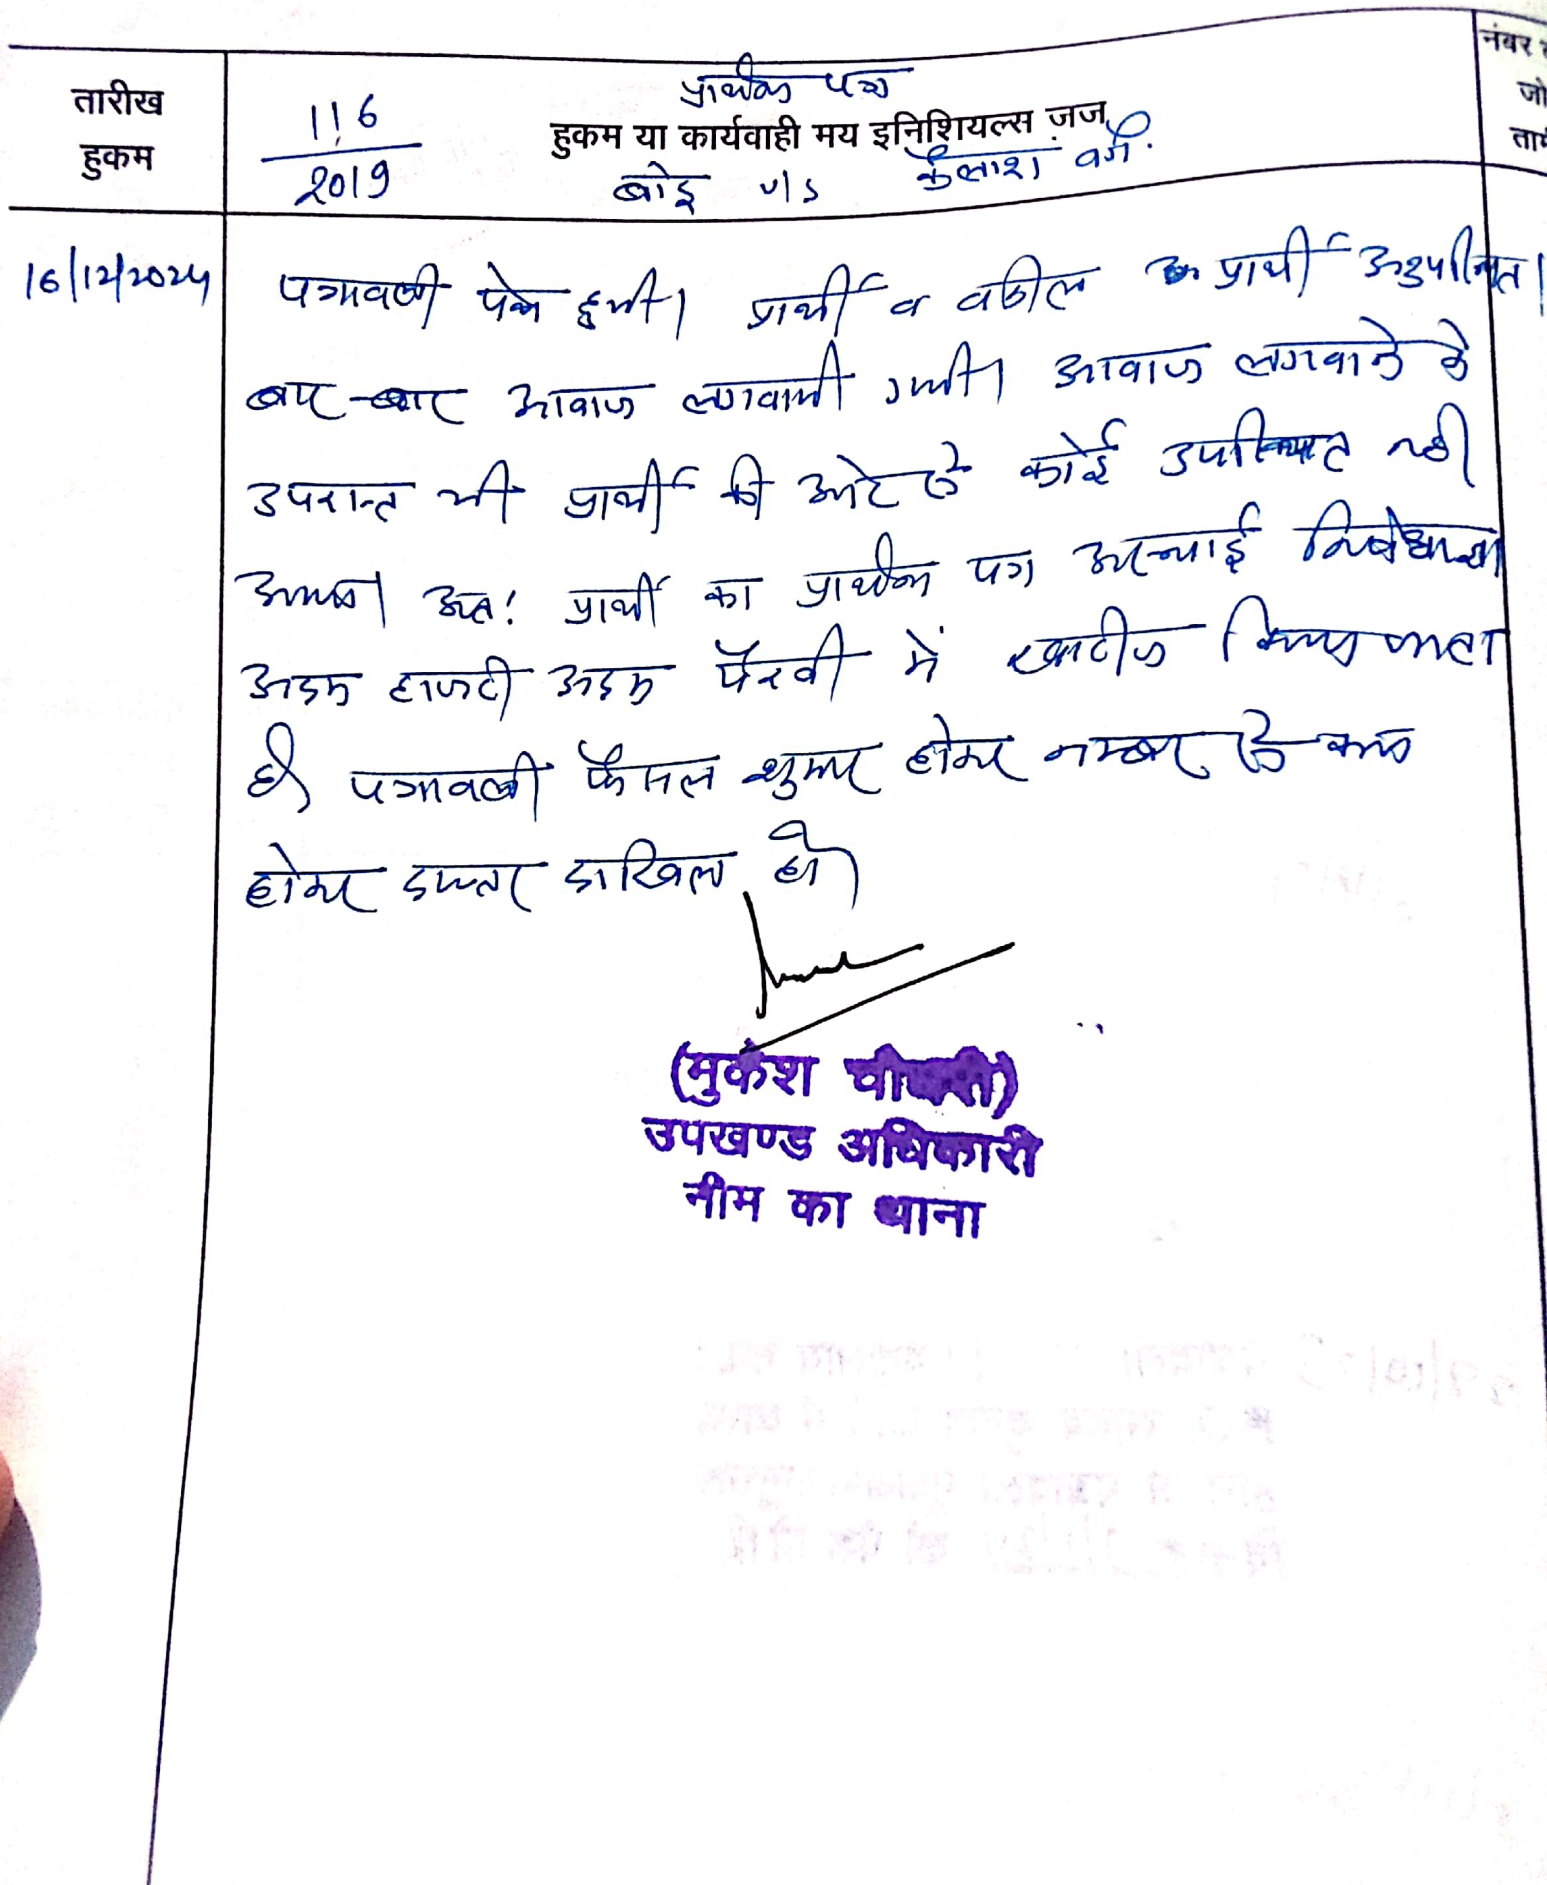 प्रार्थना पत्र
नंबर
तारीख हुकम
116/2019
हुकम या कार्यवाही मय इनिशियल्स जज
जो
बोदू v/s कैलाश वगै.
16/12/2024 पत्रावली पेश हुयी। प्रार्थी व वकील प्रार्थी अनुपस्थित।
बार-बार आवाज लगवायी गयी। आवाज लगवाने के
उपरान्त भी प्रार्थी की ओर से कोई उपस्थित नहीं
आया। अतः प्रार्थी का प्रार्थना पत्र अस्थाई निषेधाज्ञा
अदम हाजरी अदम पैरवी में खारीज किया जाता
है। पत्रावली फैसल शुमार होकर नम्बर से कम
होकर दफ्तर दाखिल हो।
(मुकेश चौधरी)
उपखण्ड अधिकारी
नीम का थाना